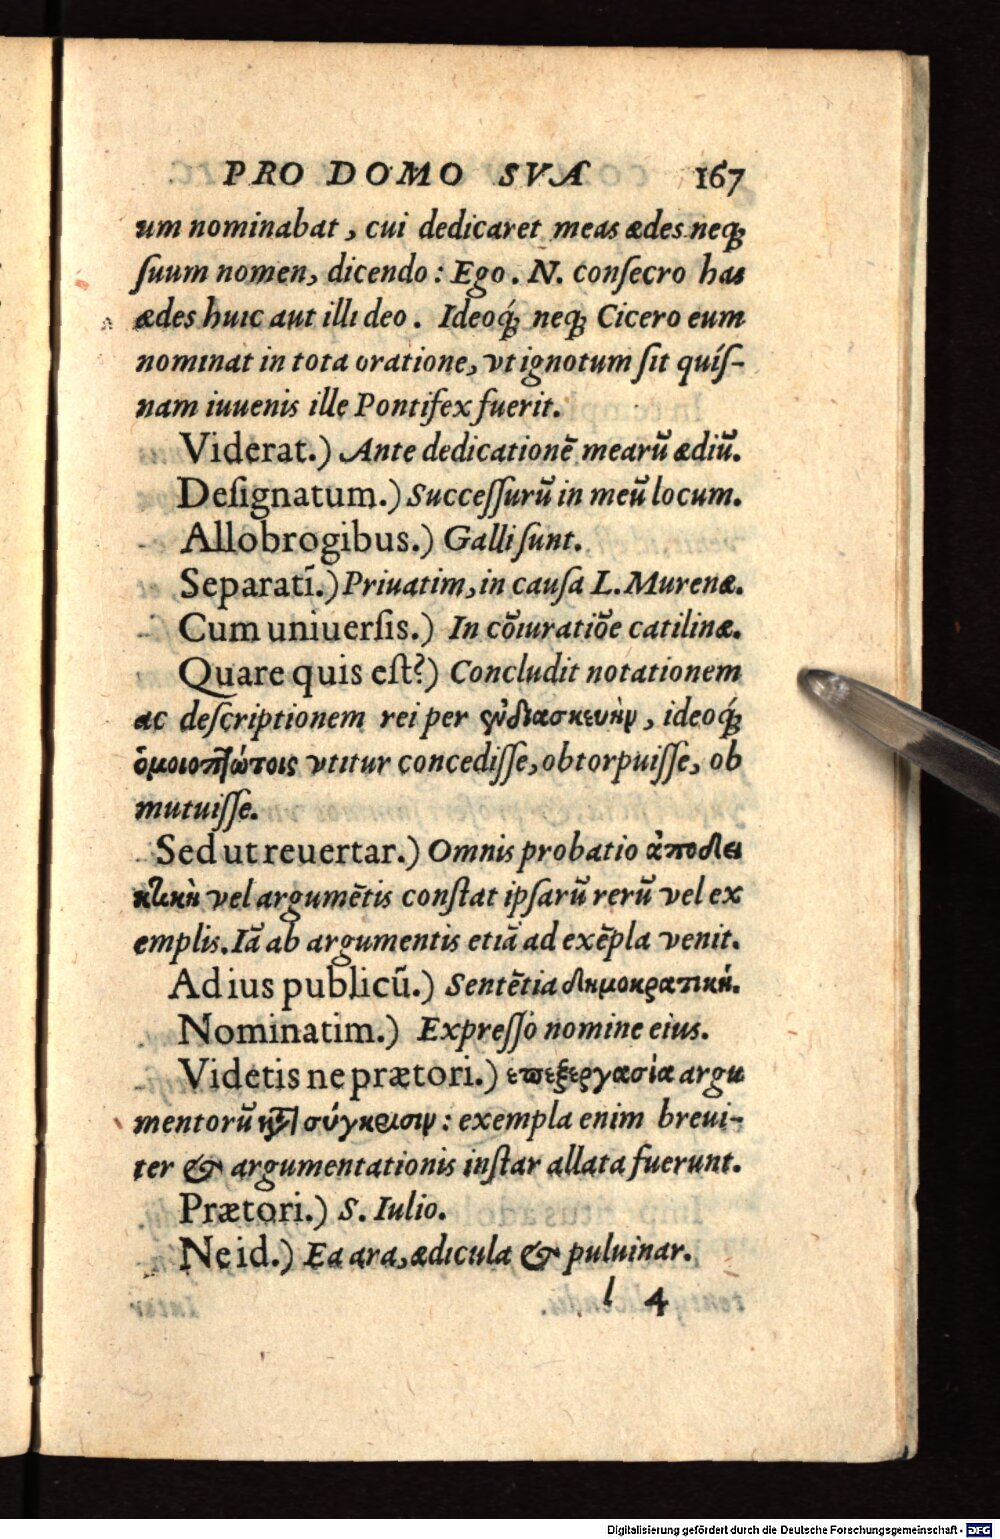 PRO DOMO SVA 167
um nominabat, cui dedicaret meas ædes neq;
ſuum nomen, dicendo: Ego. N. conſecro has
ædes huic aut illi deo. Ideoq́; neq; Cicero eum
nominat in tota oratione, vt ignotum ſit quíſ-
nam iuuenis ille Pontifex fuerit.
Viderat.) Ante dedicationē mearū ædiū.
Deſignatum.) Succeſſurū in meū locum.
Allobrogibus.) Galli ſunt.
Separatī.) Priuatim, in cauſa L. Murenæ.
Cum uniuerſis.) In cōiuratiōe catilinæ.
Quare quis eſt?) Concludit notationem
ac deſcriptionem rei per ἐνδιασκευὴν, ideoq́;
ὁμοιοπτώτοις vtitur concediſſe, obtorpuiſſe, ob
mutuiſſe.
Sed ut reuertar.) Omnis probatio ἀποδει
κτικὴ vel argumētis conſtat ipſarū rerū vel ex
emplis. Iā ab argumentis etiā ad exēpla venit.
Ad ius publicū.) Sentētia δημοκρατική.
Nominatim.) Expreſſo nomine eius.
Videtis ne prætori.) επεξεργασία argu
mentorū κατὰ σύγκρισιν: exempla enim breui-
ter & argumentationis inſtar allata fuerunt.
Prætori.) S. Iulio.
Ne id.) Ea ara, ædicula & puluinar.
l 4
Digitalisierung gefördert durch die Deutsche Forschungsgemeinschaft - DFG